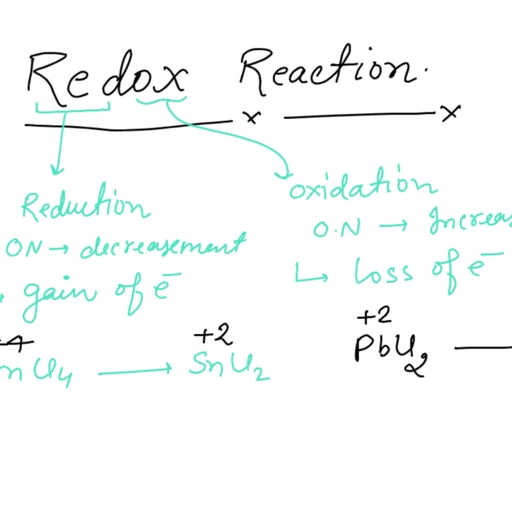 Redox Reaction.
Reduction
ON → decreasement
gain of e⁻
oxidation
O.N → Increas
↳ Loss of e⁻
+4
nCl4 → SnCl2
+2
+2
PbCl2